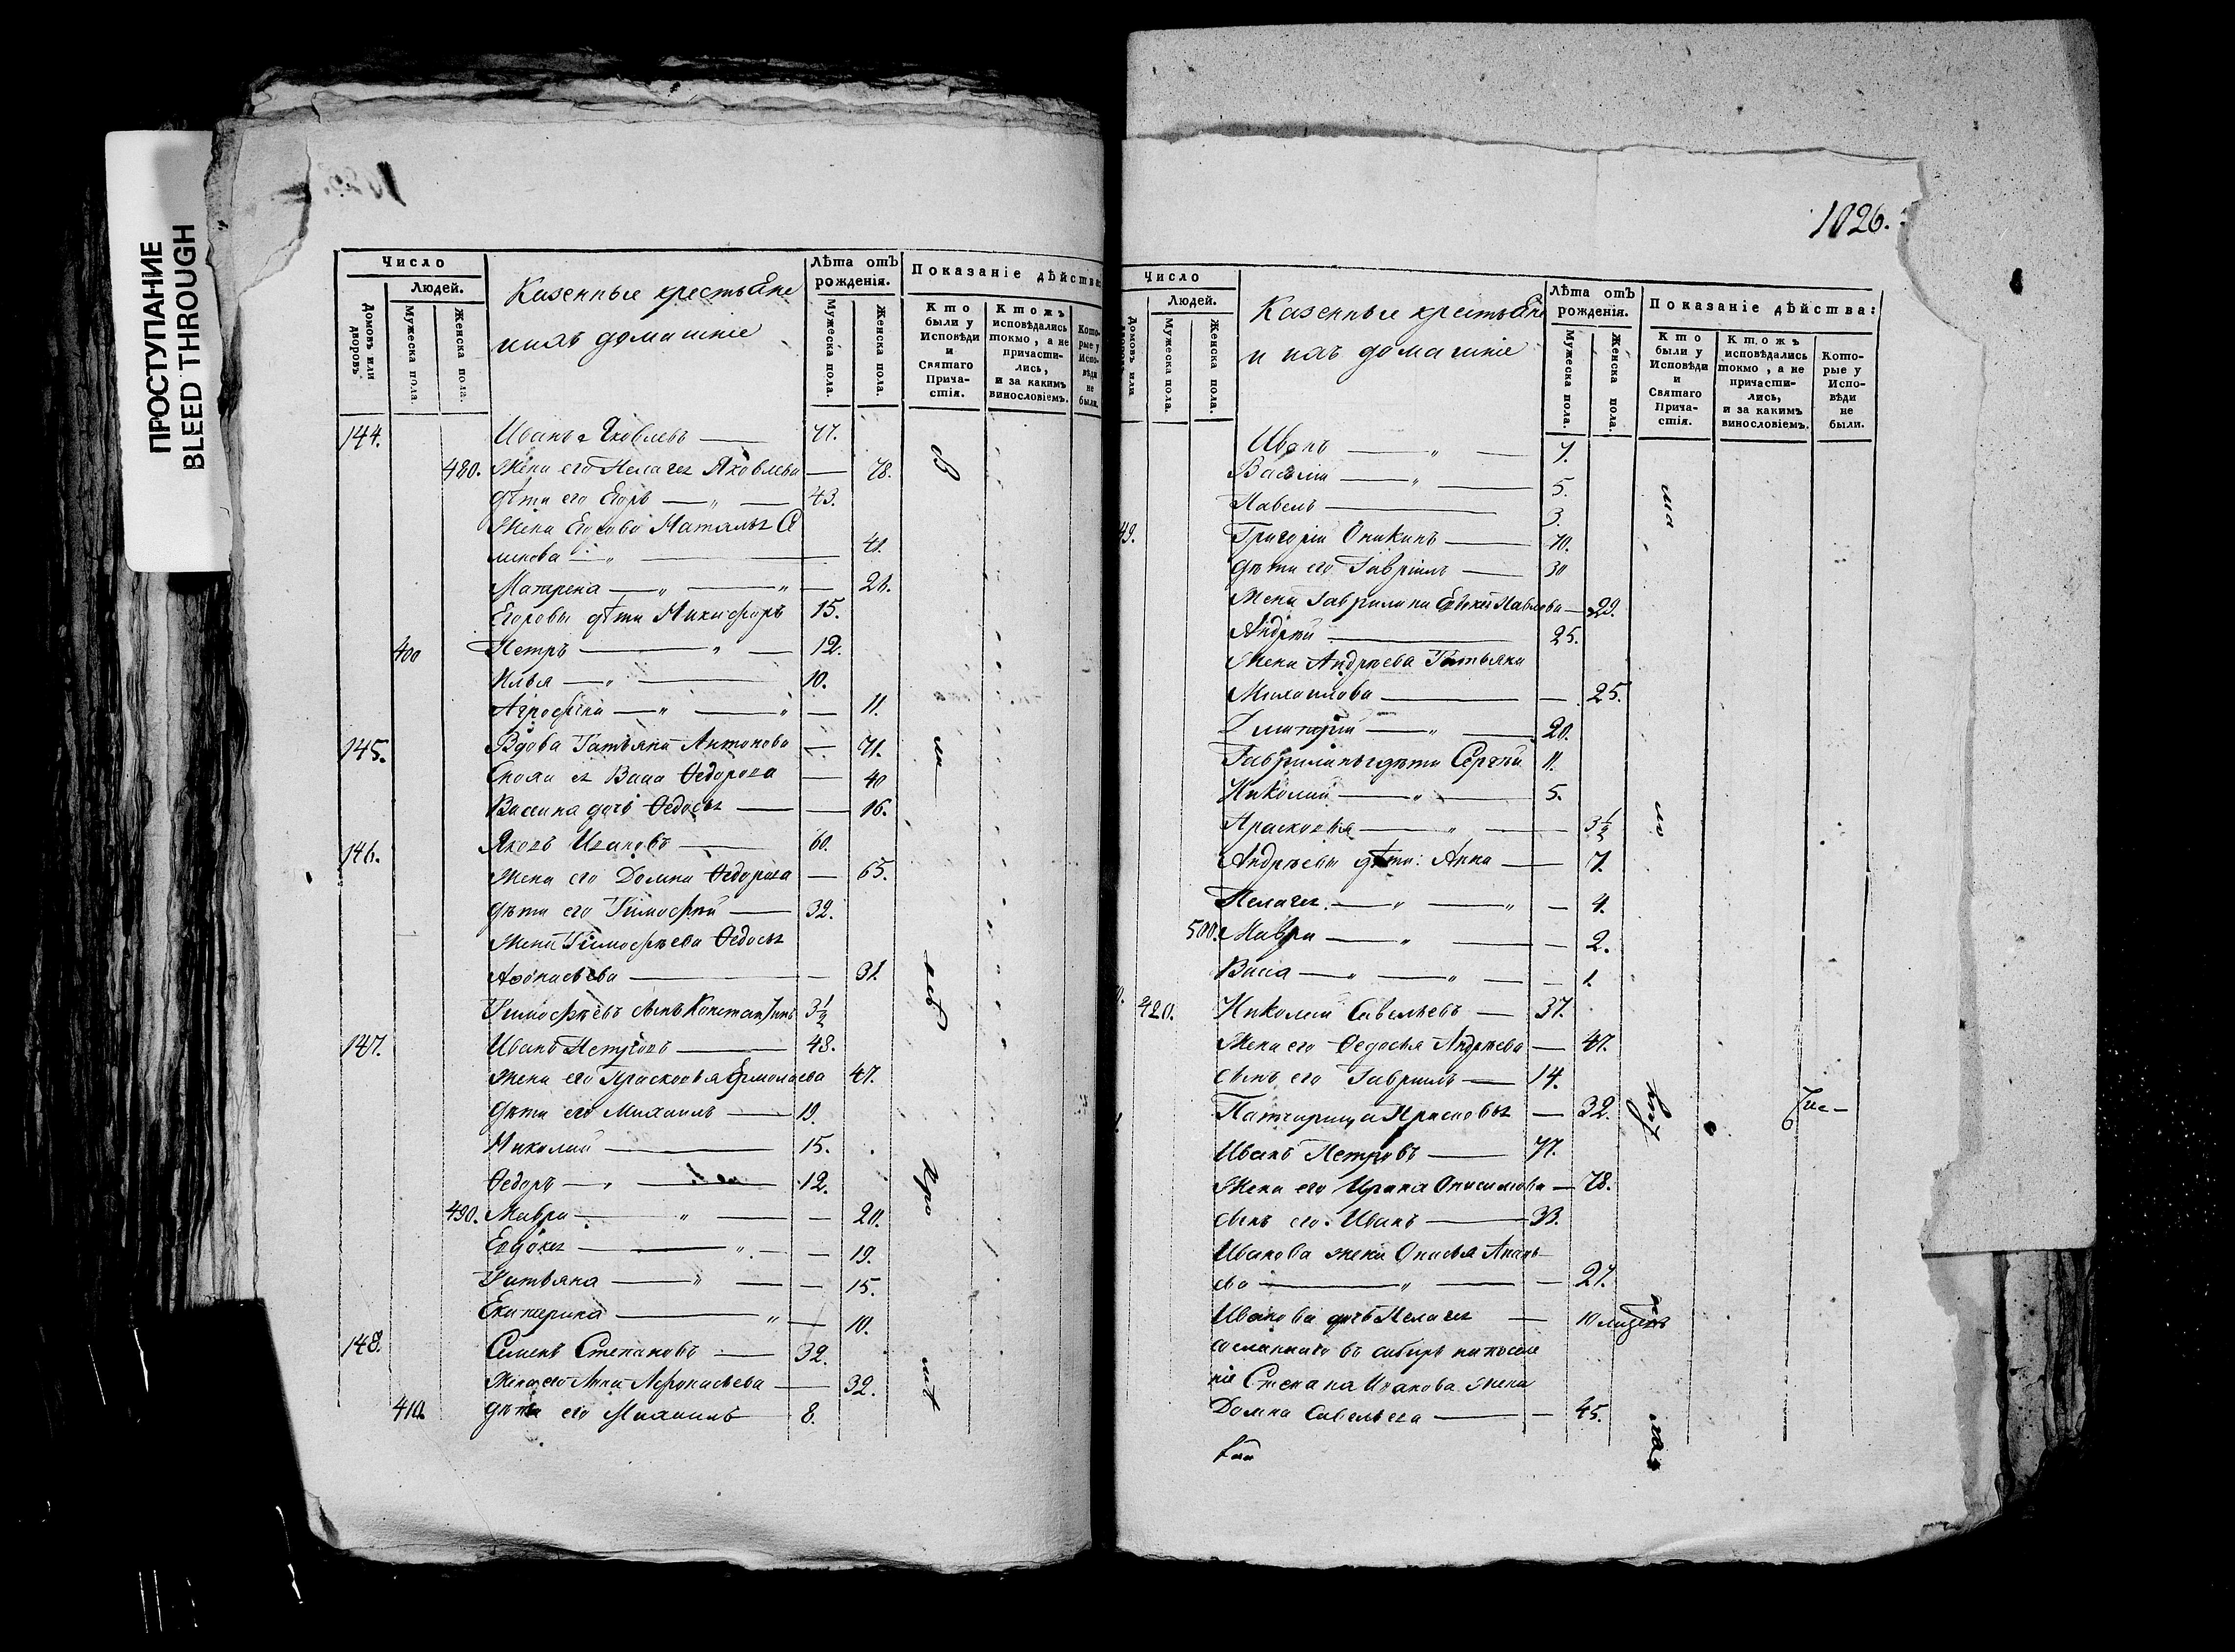 ПРОСТУПАНИЕ
BLEED THROUGH
Число
Людей.
Домовъ или дворовъ.
Мужеска пола.
Женска пола.
Казенные крестьяне
и ихъ домашніе
Лѣта отъ рожденія.
Мужеска пола.
Женска пола.
Показаніе дѣйства:
Кто были у Исповѣди и Святаго Причастія.
Ктожъ исповѣдались токмо, а не причастились, и за какимъ винословіемъ.
Которые у Исповѣди не были.
144. Иванъ Яковлевъ — 77.
480. Жена его Пелагея Яковлева — 78.
дѣти его Егоръ — „ — 43.
Жена Егорова Наталья С
— „ — 41.
Матрена — „ — „ — 26.
Егоровы дѣти Никифоръ 15.
400 Петръ — „ — 12.
Илья — „ — 10.
Агрофена — „ — „ — 11.
145. Вдова Татьяна Антонова — 71.
Сноха ея Васа Ѳедорова — 40
Васина дочь Ѳедосья — 16.
146. Яковъ Ивановъ — 60.
Жена его Домна Ѳедорова — 65.
дѣти его Тимофѣй — 32.
Жена Тимофѣева Ѳедосья
Афонасьева — 31.
Тимофѣевъ сынъ Константинъ 3½
147. Иванъ Петровъ — 48.
Жена его Прасковья Ермолаева 47.
дѣти его Михаилъ — 19.
Николай — 15.
Ѳедоръ — „ — 12.
490. Мавра — „ — 20.
Евдокея — „ — 19.
Татьяна — „ — 15.
Екатерина — „ — 10.
148. Семенъ Степановъ — 32.
Жена его Анна Афонасьева — 32.
410. дѣти его Михаилъ 8.
1026.
Число
Людей.
Домовъ или
Мужеска пола.
Женска пола.
Казенные крестьяне
и ихъ домашніе
Лѣта отъ рожденія.
Мужеска пола.
Женска пола.
Показаніе дѣйства:
Кто были у Исповѣди и Святаго Причастія.
Ктожъ исповѣдались токмо, а не причастились, и за какимъ винословіемъ.
Которые у Исповѣди не были.
Иванъ — „ — 7.
Василій — „ — 5.
Павелъ — 3.
49. Григорій Оникинъ — 70.
дѣти его Гавріилъ — 30
Жена Гаврилина Евдокея Павлова — 29.
Андрѣй — 25.
Жена Андрѣева Татьяна
Михаилова — 25.
Дмитрій — „ — 20.
Гаврилины дѣти Сергѣй 11.
Николай — „ — 5.
Прасковья — „ — 3½
Андрѣевы дѣти: Анна — 7.
Пелагея — „ — „ — 4.
500. Мавра — „ — 2.
Васа — „ — „ — 1.
420. Николай Савельевъ — 37.
Жена его Ѳедосья Андрѣева — 47.
сынъ его Гавріилъ — 14.
Патчирица Прасковья — 32.
Иванъ Петровъ — 77.
Жена его Ирина Онисимова — 78.
сынъ его Иванъ — 33.
Иванова жена Онисья Анань
ева — „ — 27.
Иванова дочь Пелагея — 10
сосланнаго въ сибирь на поселе
ніе Степана Иванова жена
Домна Савельева — 45.